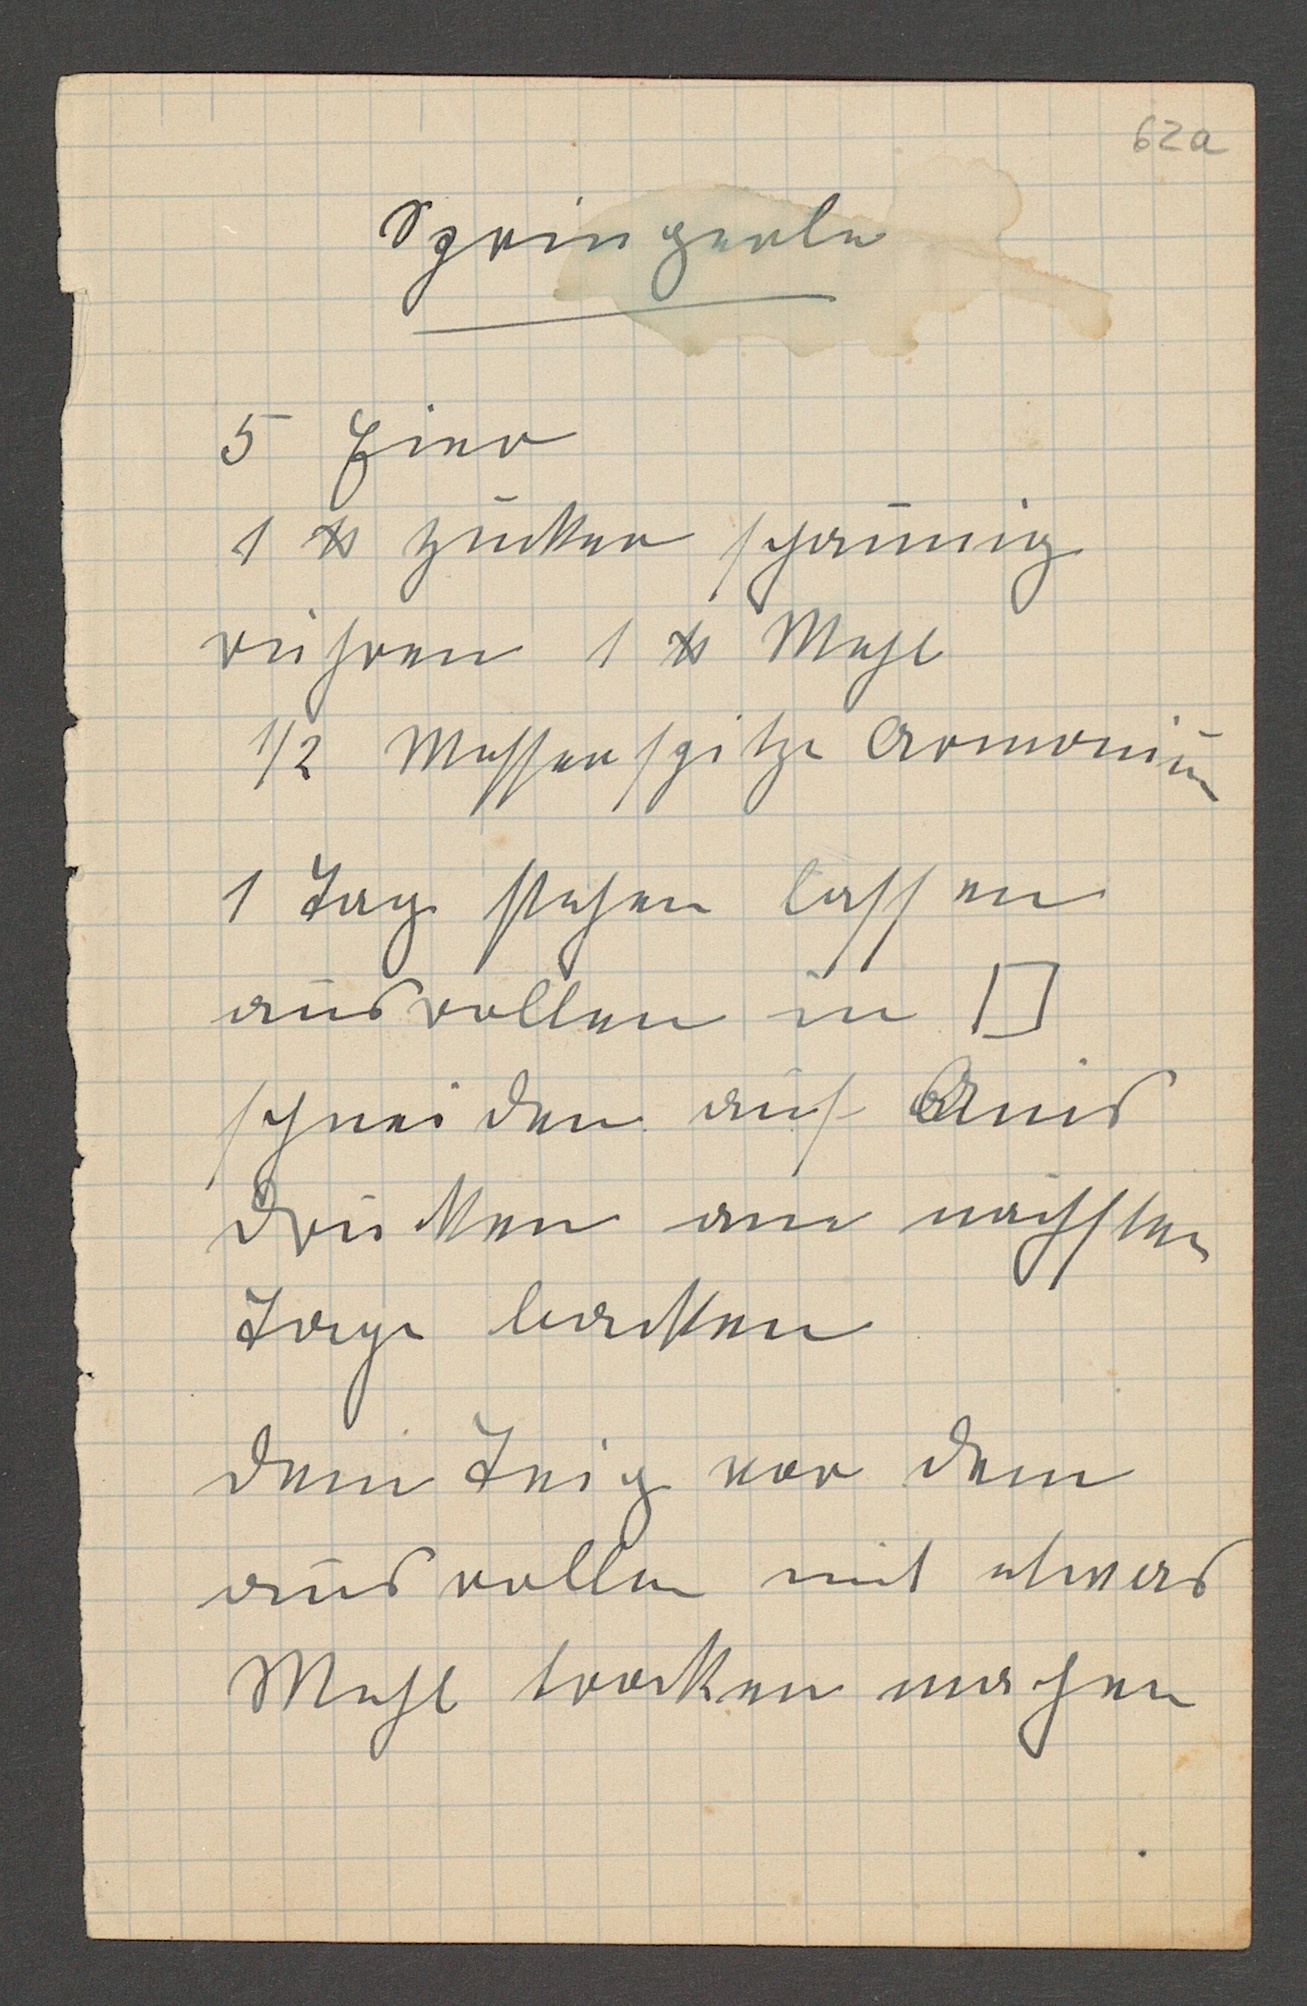 62a
Springerle
5 Eier
1 ℔ Zucker schaumig
rühren 1 ℔ Mehl
1/2 Messerspitze Armonium
1 Tag stehen lassen
ausrollen in □
schneiden auf Anis
drücken am nächsten
Tage backen
dem Teig vor dem
ausrollen mit etwas
Mehl trocken machen